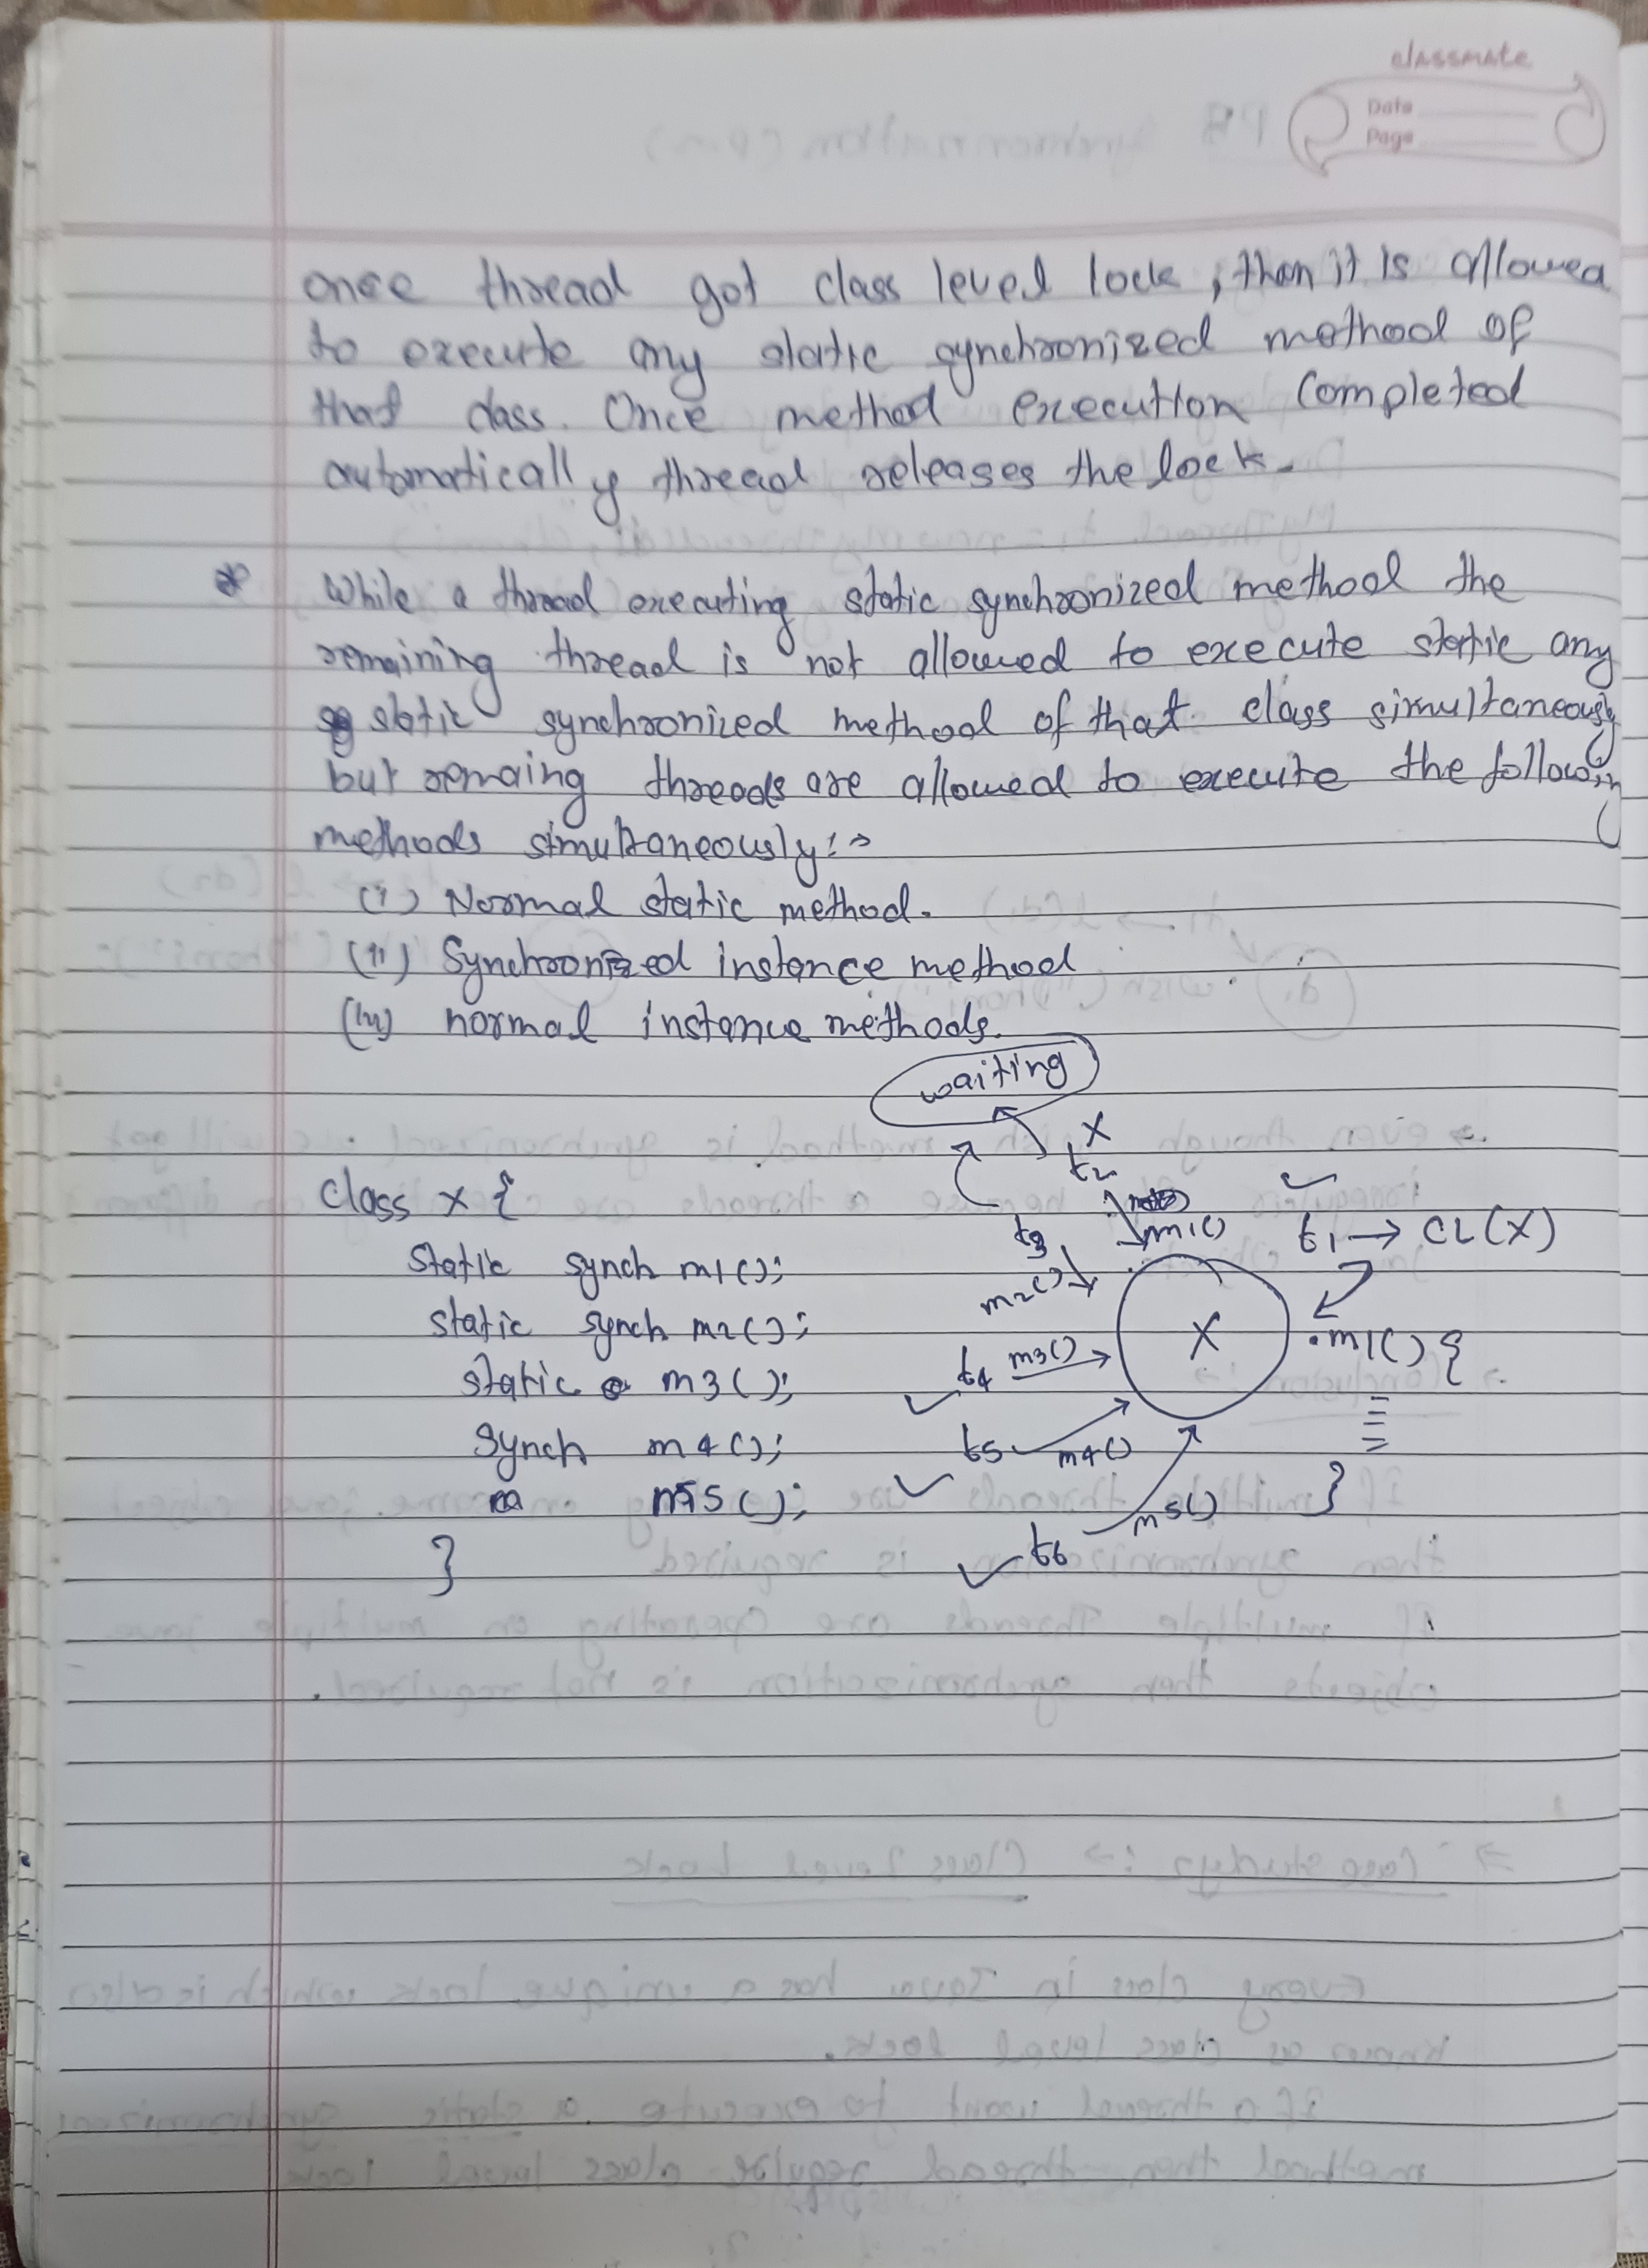 classmate
Date
Page
once thread got class level lock, then it is allowed
to execute any static synchronized method of
that class. Once method execution completed
automatically thread releases the lock.
* While a thread executing static synchronized method the
remaining thread is not allowed to execute static any
static synchronized method of that class simultaneously
but remaing threads are allowed to execute the following
methods simultaneously :->
(i) Normal static method.
(ii) Synchronized instance method
(iii) normal instance methods.
waiting
X
t2
class X {
m1()
t1 → CL(X)
t3
static synch m1();
m2()
static synch m2();
X
.m1() {
static m3();
t4 m3()
synch m4();
t5 m4()
m5();
m5()
}
}
t6